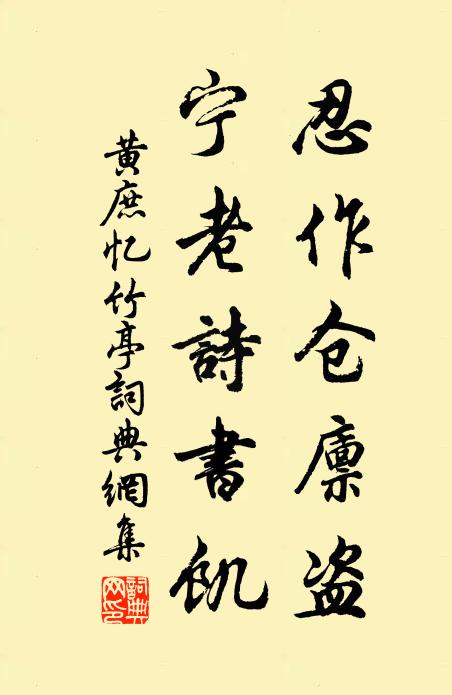 忍作仓廪盗
宁老詩書飢
黄庶忆竹亭詞典網集
詞典網印